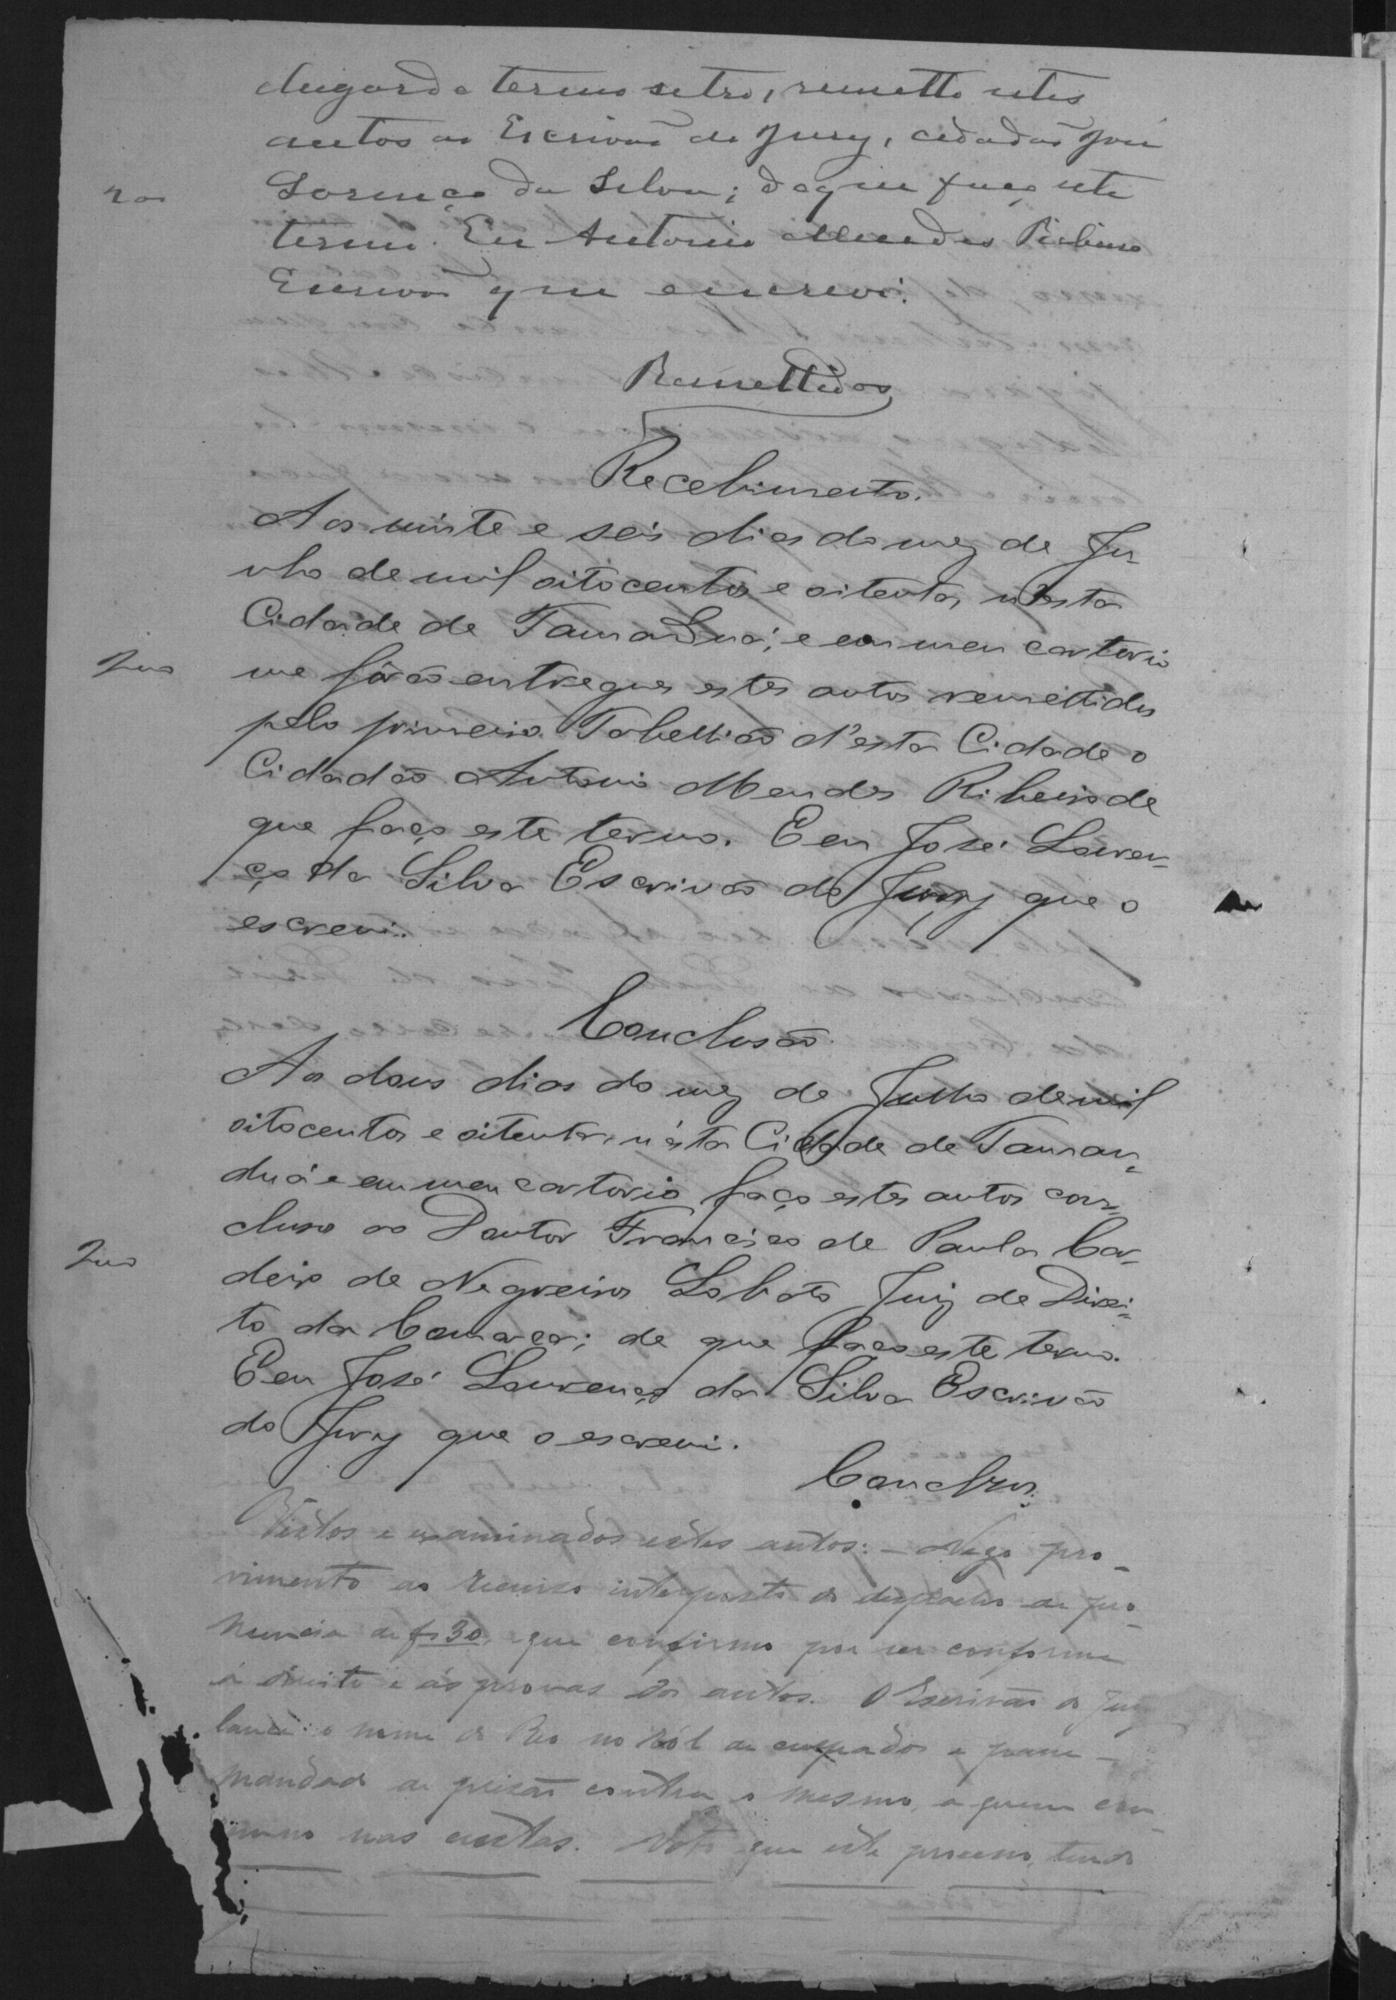 termo retro, remetto estes
autos ao Escrivão do Jury, cidadão José
Lorenço da Silva; do que faço este
200
termo. Eu Antonio Mendes Ribeiro
Escrivão que escrevi.
Remettidos
Recebimento.
Aos vinte e seis dias do mez de Ju-
nho de mil oitocentos e oitenta, n'esta
Cidade de Tamanduá; e em meu cartorio
200
me fôrão entregues estes autos remettidos
pelo primeiro Tabellião d'esta Cidade o
Cidadão Antonio Mendes Ribeiro de
que faço este termo. E eu José Louren-
ço da Silva Escrivão do Jury que o
escrevi.
Conclusão
Aos dous dias do mez de Julho de mil
oitocentos e oitenta, n'esta Cidade de Taman-
duá e em meu cartorio faço estes autos con-
cluso ao Doutor Francisco de Paula Cor-
200
deiro de Negreiros Lobato Juiz de Direi-
to da Comarca; de que faço este termo.
E eu José Lourenço da Silva Escrivão
do Jury que o escrevi.
Conclzos.
Vistos e examinados estes autos: - Nego pro-
vimento ao recurso interposto do despacho de pro-
nuncia de fs 30, que confirmo por ser conforme
a direito e ás provas dos autos. O Escrivão do Jury
lance o nome do Reo no ról de culpados e passe
mandado de prizão contra o mesmo, a quem con-
nas custas. Noto que este processo, tendo